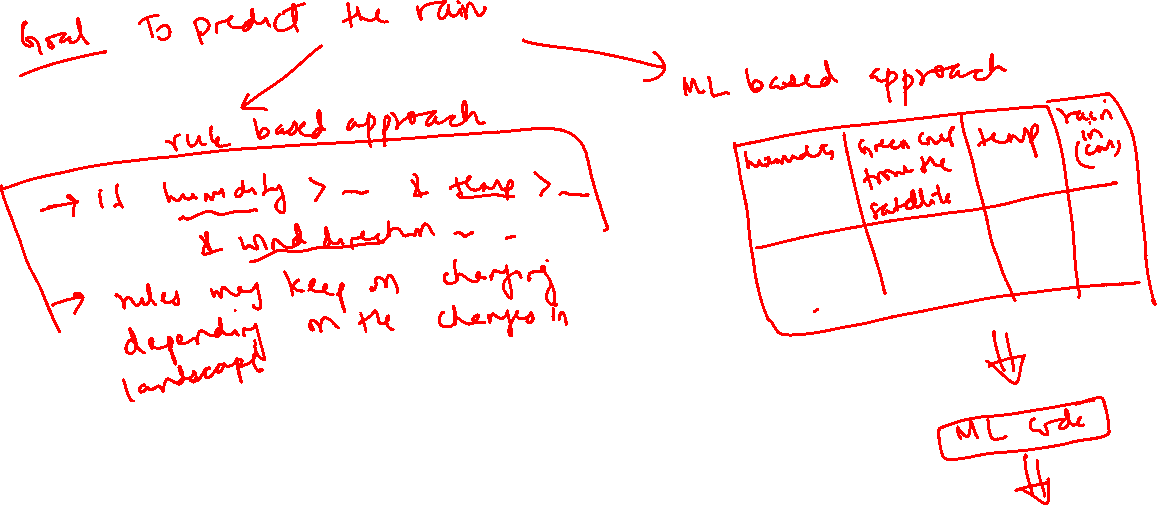 Goal To predict the rain
rule based approach
→ if humidity > _ & temp > _
& wind direction ~ -
→ rules may keep on changing
depending on the changes in
landscape
ML based approach
humidity
Green cover
from the
satellite
temp
rain
in
(cm)
ML code